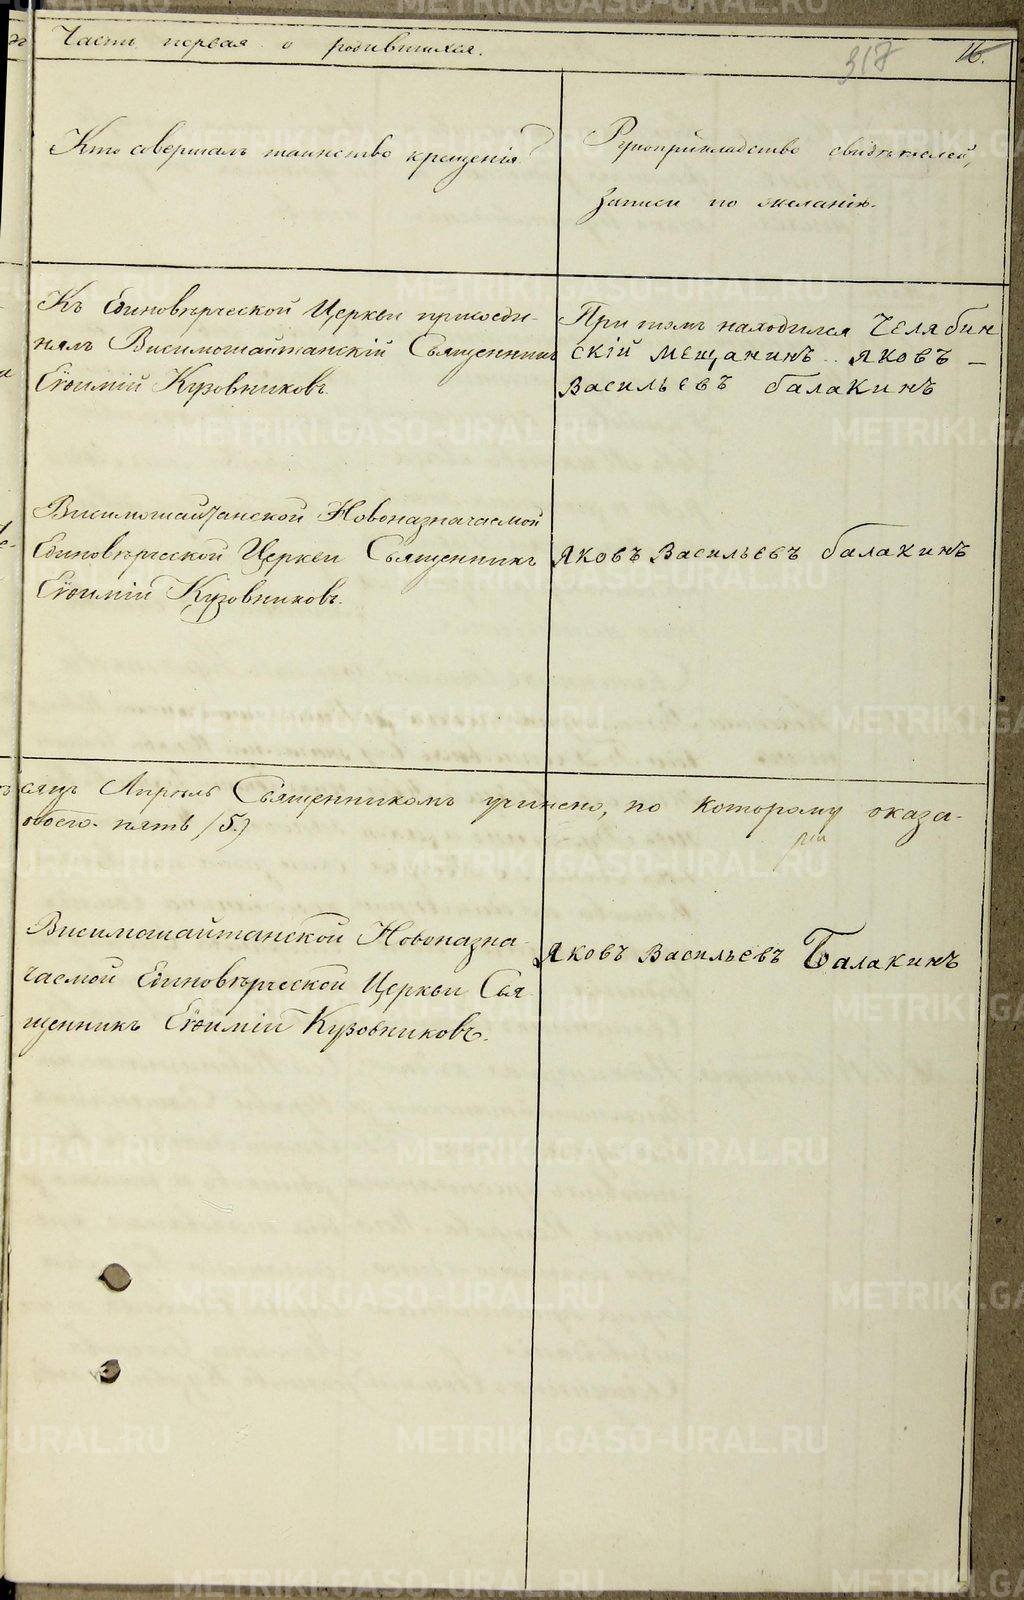 Часть первая о родившихся.
317
16.
Кто совершалъ таинство крещенія?
Рукоприкладство свидѣтелей,
записи по желанію.
Къ Единовѣрческой Церкви присоеди-
нялъ Висимошайтанскій Священникъ
Евѳимій Кузовниковъ.
При томъ находился Челябин
скій мещанинъ Яковъ
Васильевъ балакинъ
Висимошайтанской Новоназначаемой
Единовѣрческой Церкви Священникъ
Евѳимій Кузовниковъ.
Яковъ Васильевъ балакинъ
сяцъ Апрѣль Священникомъ учинено, по которому оказа-
обоего пять (5.)
Висимошайтанской Новоназна-
чаемой Единовѣрческой Церкви Свя
щенникъ Евѳимій Кузовниковъ.
Яковъ Васильевъ Балакинъ
METRIKI.GASO-URAL.RU